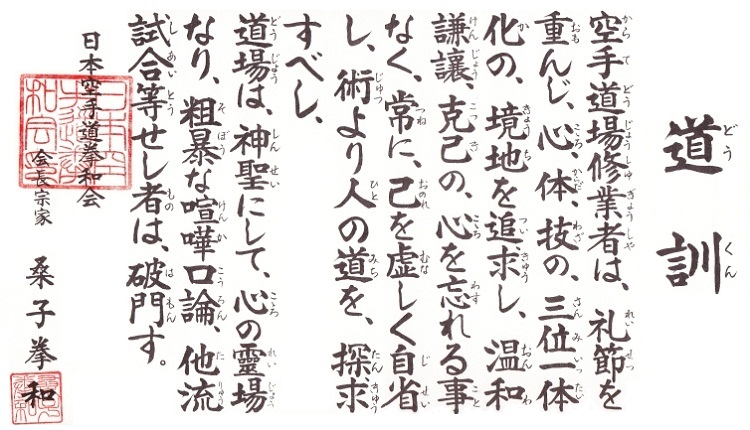 道訓
空手道場修業者は、礼節を
重んじ、心、体、技の、三位一体
化の、境地を追求し、温和
謙譲、克己の、心を忘れる事
なく、常に、己を虚しく自省
し、術より人の道を、探求
すべし、
道場は、神聖にして、心の靈場
なり、粗暴な喧嘩口論、他流
試合等せし者は、破門す。
日本空手道拳和会
会長宗家 桑子拳和